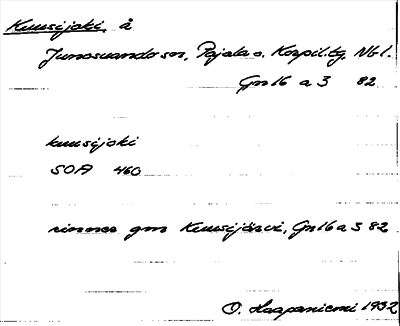 Kuusijoki, å
Junosuando sn, Pajala o. Korpil. tg. Nbl.
Gn 16 a 3 82
kuusijoki
SOA 460
rinner gm Kuusijärvi, Gn 16 a 3 82
O. Haapaniemi 1932